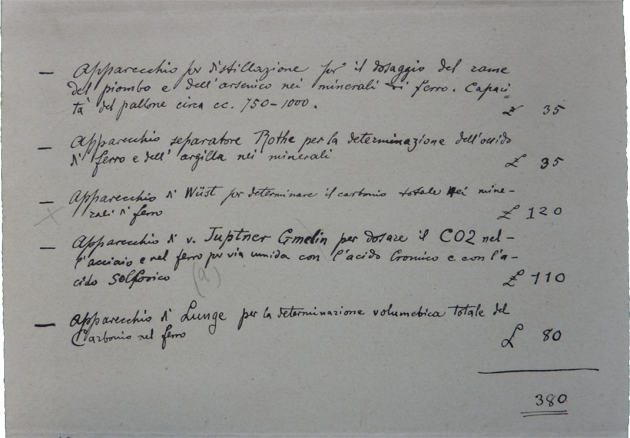 — Apparecchio per distillazione per il dosaggio del rame
del piombo e dell'arsenico nei minerali di ferro. Capaci-
tà del pallone circa cc. 750-1000. £ 35
— Apparecchio separatore Rothe per la determinazione dell'ossido
di ferro e dell'argilla nei minerali £ 35
— Apparecchio di Wüst per determinare il carbonio totale nei mine-
rali di ferro £ 120
— Apparecchio di v. Juptner Gmelin per dosare il CO2 nel-
l'acciaio e nel ferro per via umida con l'acido Cromico e con l'a-
cido Solforico (?) £ 110
— Apparecchio di Lunge per la determinazione volumetrica totale del
Carbonio nel ferro £ 80
380